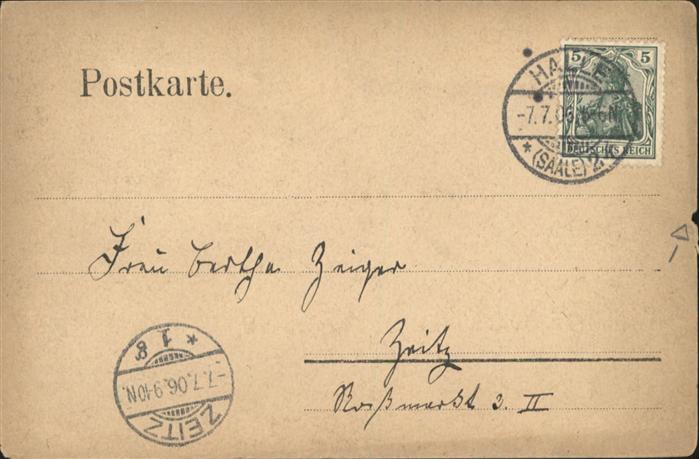 Postkarte.
5 5
DEUTSCHES REICH
HALLE
-7.7.06.
* (SAALE) 2
Frau Bertha Zeiger
Zeitz
Roßmarkt 3. II
* 1 g *
-7.7.06.9-10N.
ZEITZ